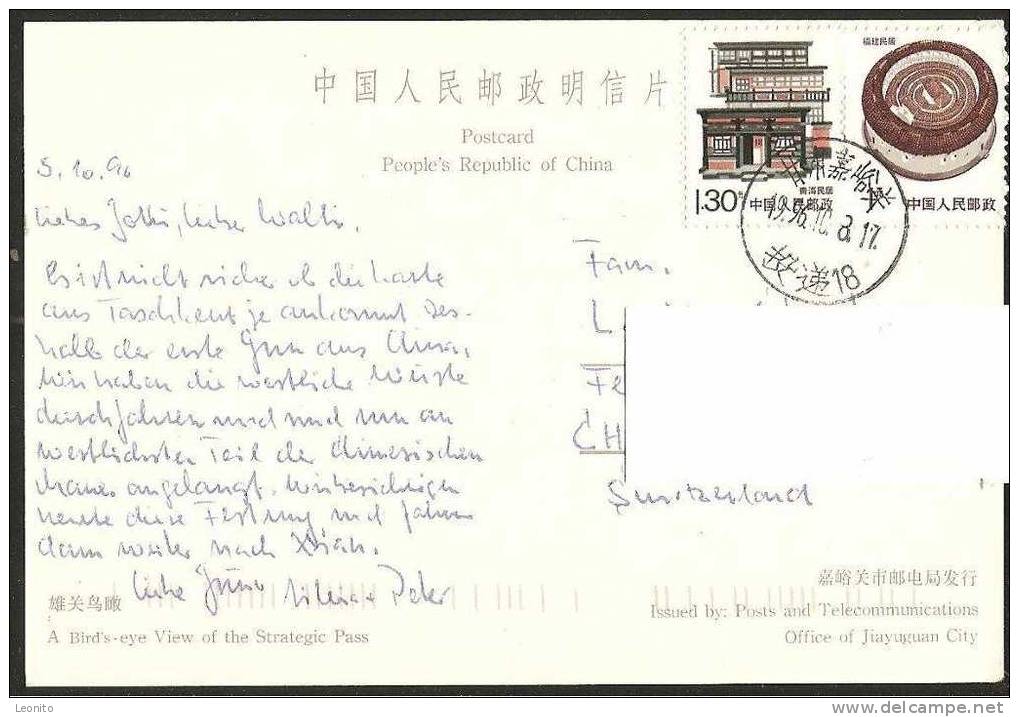 中国人民邮政明信片
Postcard
People's Republic of China
福建民居
青海民居
1.30元
中国人民邮政
中国人民邮政
甘肃嘉峪关
1996.10.8.17
投递18
5.10.96
Liebes Jolki, lieber Walti,
Es ist nicht sicher ob die Karte
aus Taschkent je ankommt des-
halb der erste Gruss aus China,
Wir haben die westliche Wüste
durchfahren und sind nun am
westlichsten Teil der Chinesischen
Mauer angelangt. Wir besichtigen
heute diese Festung und fahren
dann weiter nach Xian.
Liebe Grüsse Peter
Fam.
L
Fe
CH
Switzerland
雄关鸟瞰
A Bird's-eye View of the Strategic Pass
嘉峪关市邮电局发行
Issued by: Posts and Telecommunications
Office of Jiayuguan City
Leonito
www.delcampe.net